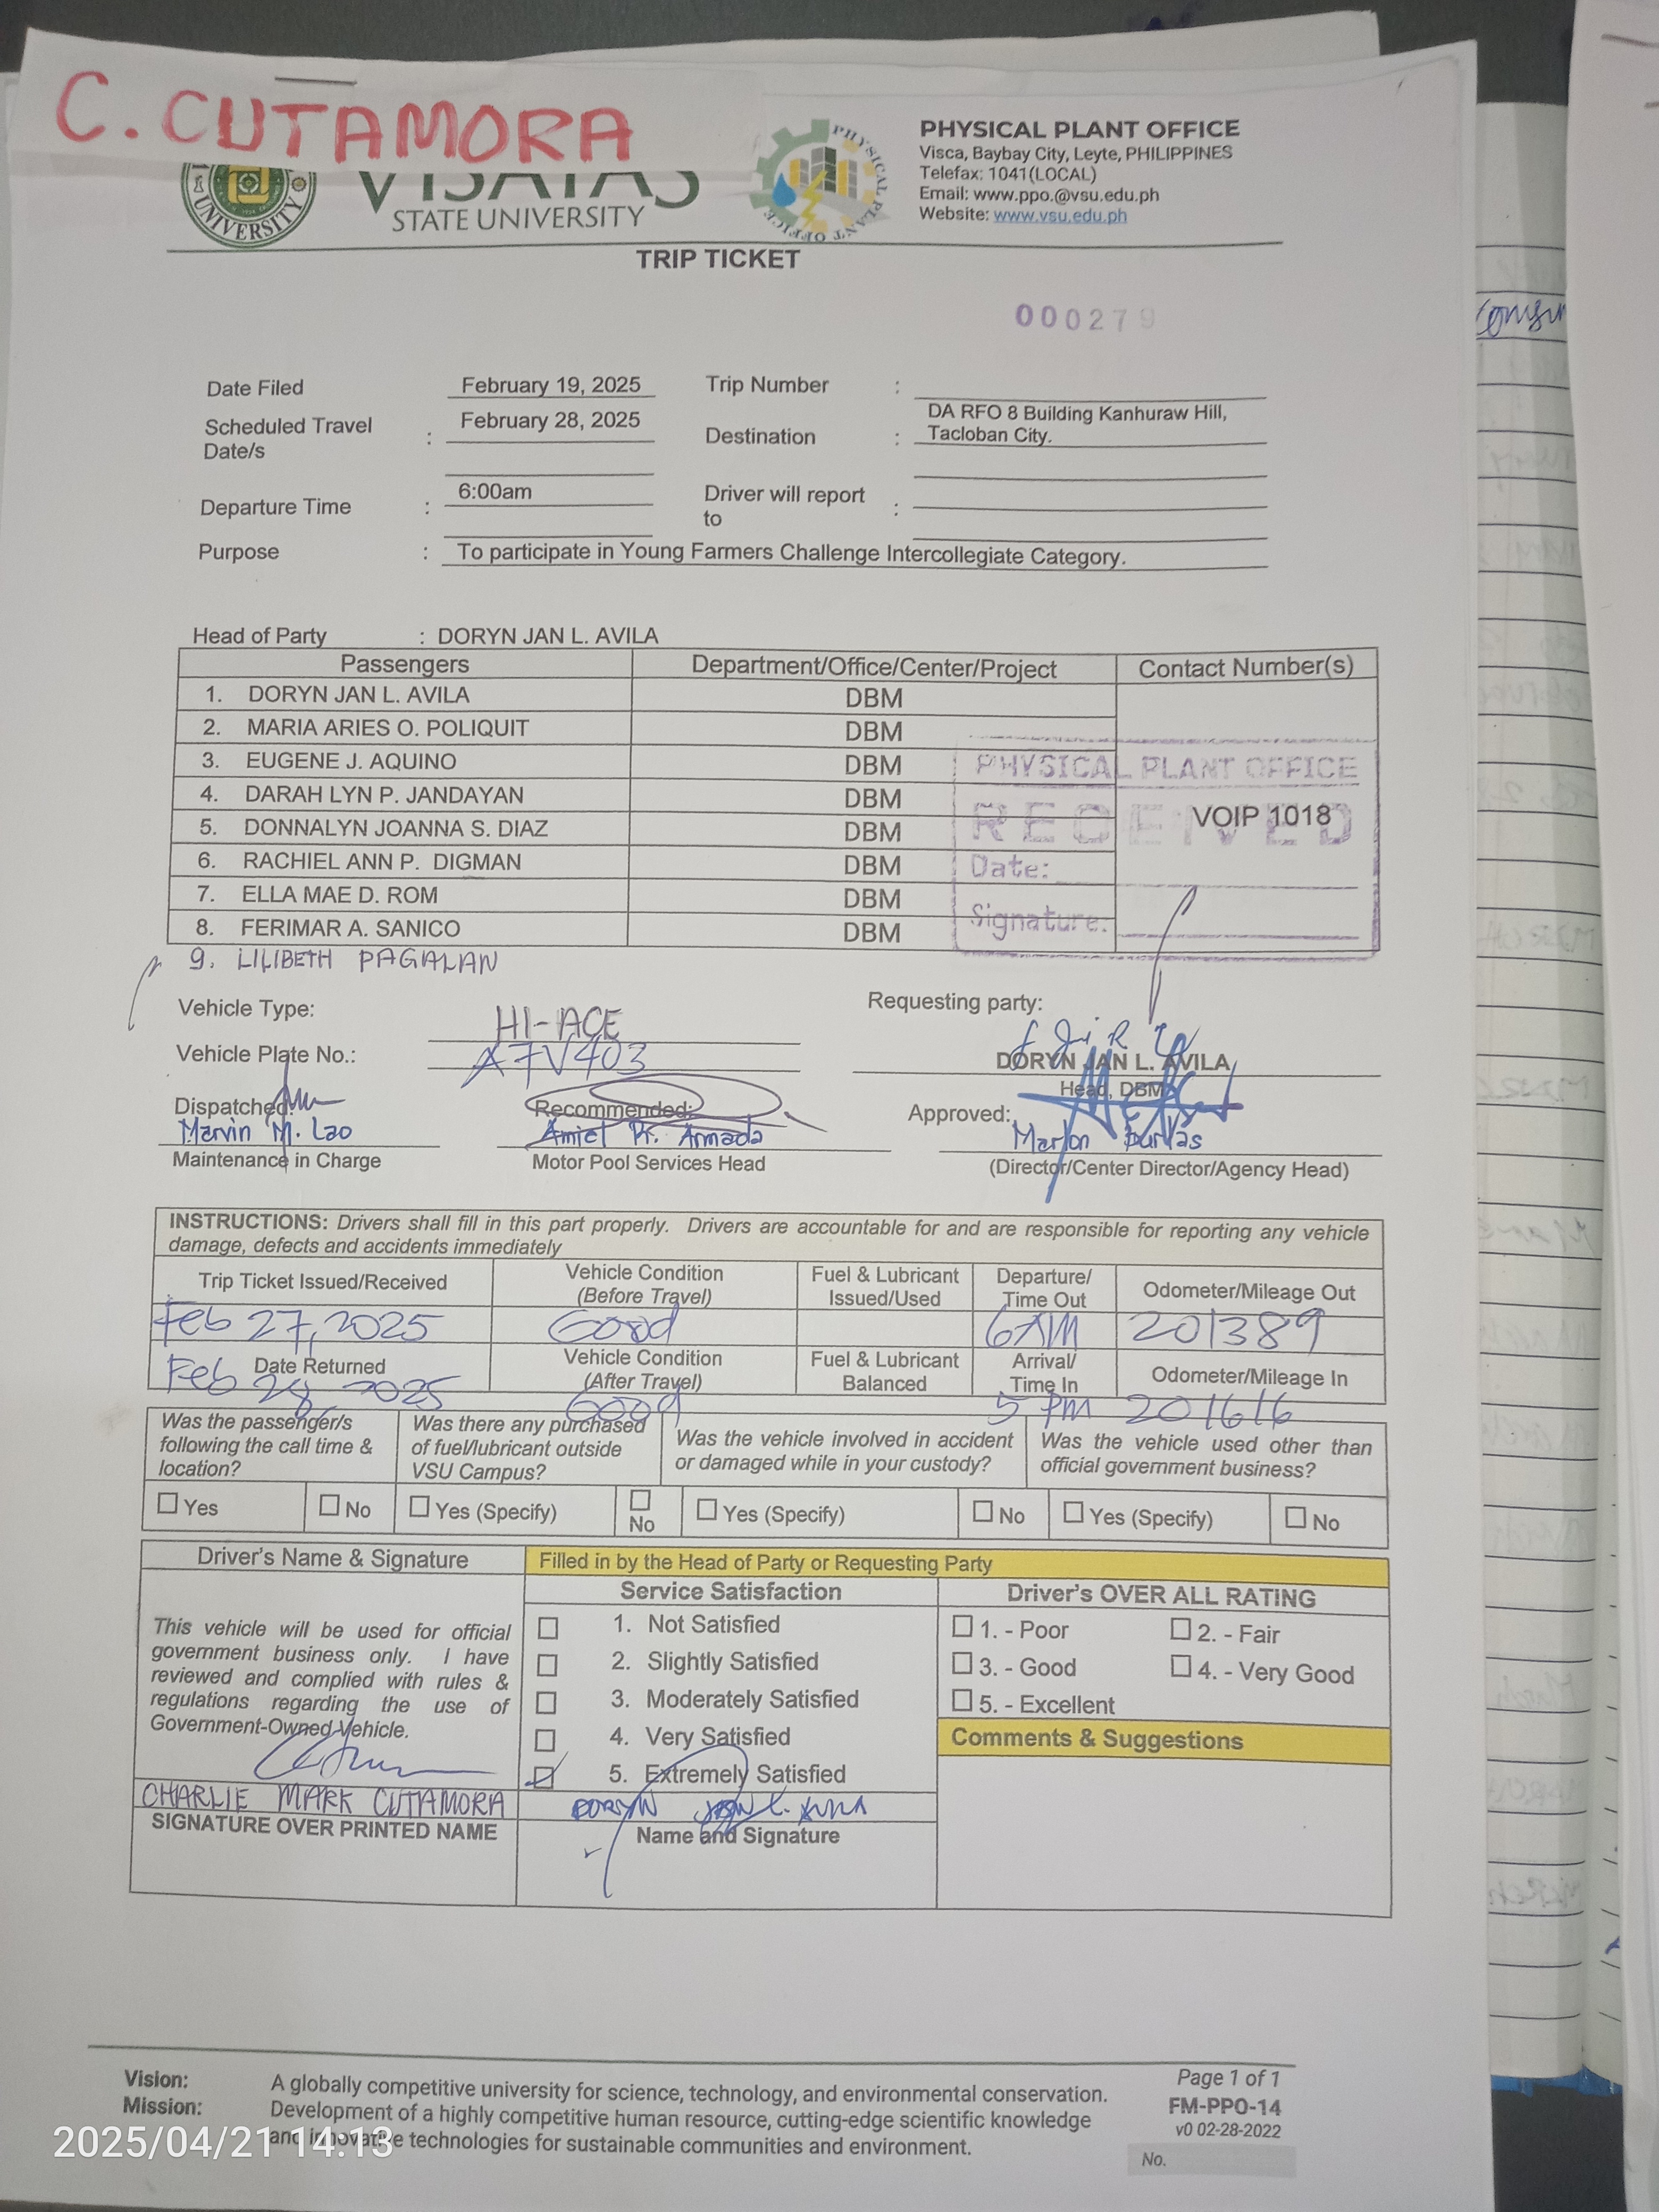 C. CUTAMORA
UNIVERSITY
VISAYAS
STATE UNIVERSITY
PHYSICAL PLANT OFFICE
PHYSICAL PLANT OFFICE
Visca, Baybay City, Leyte, PHILIPPINES
Telefax: 1041(LOCAL)
Email: www.ppo.@vsu.edu.ph
Website: www.vsu.edu.ph
TRIP TICKET
000279
Date Filed February 19, 2025 Trip Number :
Scheduled Travel Date/s : February 28, 2025 Destination : DA RFO 8 Building Kanhuraw Hill, Tacloban City.
Departure Time : 6:00am Driver will report to :
Purpose : To participate in Young Farmers Challenge Intercollegiate Category.
Head of Party : DORYN JAN L. AVILA
Passengers Department/Office/Center/Project Contact Number(s)
1. DORYN JAN L. AVILA DBM
2. MARIA ARIES O. POLIQUIT DBM
3. EUGENE J. AQUINO DBM
4. DARAH LYN P. JANDAYAN DBM
5. DONNALYN JOANNA S. DIAZ DBM
6. RACHIEL ANN P. DIGMAN DBM
7. ELLA MAE D. ROM DBM
8. FERIMAR A. SANICO DBM
VOIP 1018
PHYSICAL PLANT OFFICE
RECEIVED
Date:
Signature:
9. LILIBETH PAGALAN
Vehicle Type: HI-ACE
Requesting party:
Vehicle Plate No.: A7V403
DORYN JAN L. AVILA
Head, DBM
Dispatched: Recommended: Approved:
Marvin M. Lao Amiel R. Armada Marlon Burlas
Maintenance in Charge Motor Pool Services Head (Director/Center Director/Agency Head)
INSTRUCTIONS: Drivers shall fill in this part properly. Drivers are accountable for and are responsible for reporting any vehicle
damage, defects and accidents immediately
Trip Ticket Issued/Received Vehicle Condition (Before Travel) Fuel & Lubricant Issued/Used Departure/ Time Out Odometer/Mileage Out
Feb 27, 2025 Good 6AM 201389
Date Returned Vehicle Condition (After Travel) Fuel & Lubricant Balanced Arrival/ Time In Odometer/Mileage In
Feb 28, 2025 Good 5 PM 201616
Was the passenger/s following the call time & location? Was there any purchased of fuel/lubricant outside VSU Campus? Was the vehicle involved in accident or damaged while in your custody? Was the vehicle used other than official government business?
Yes No Yes (Specify) No Yes (Specify) No Yes (Specify) No
Driver's Name & Signature Filled in by the Head of Party or Requesting Party
Service Satisfaction Driver's OVER ALL RATING
This vehicle will be used for official
government business only. I have
reviewed and complied with rules &
regulations regarding the use of
Government-Owned-Vehicle.
1. Not Satisfied
2. Slightly Satisfied
3. Moderately Satisfied
4. Very Satisfied
5. Extremely Satisfied
1. - Poor 2. - Fair
3. - Good 4. - Very Good
5. - Excellent
Comments & Suggestions
CHARLIE MARK CUTAMORA
SIGNATURE OVER PRINTED NAME
DORYN JAN L. AVILA
Name and Signature
Vision: A globally competitive university for science, technology, and environmental conservation.
Mission: Development of a highly competitive human resource, cutting-edge scientific knowledge
and innovative technologies for sustainable communities and environment.
Page 1 of 1
FM-PPO-14
v0 02-28-2022
No.
2025/04/21 14:13